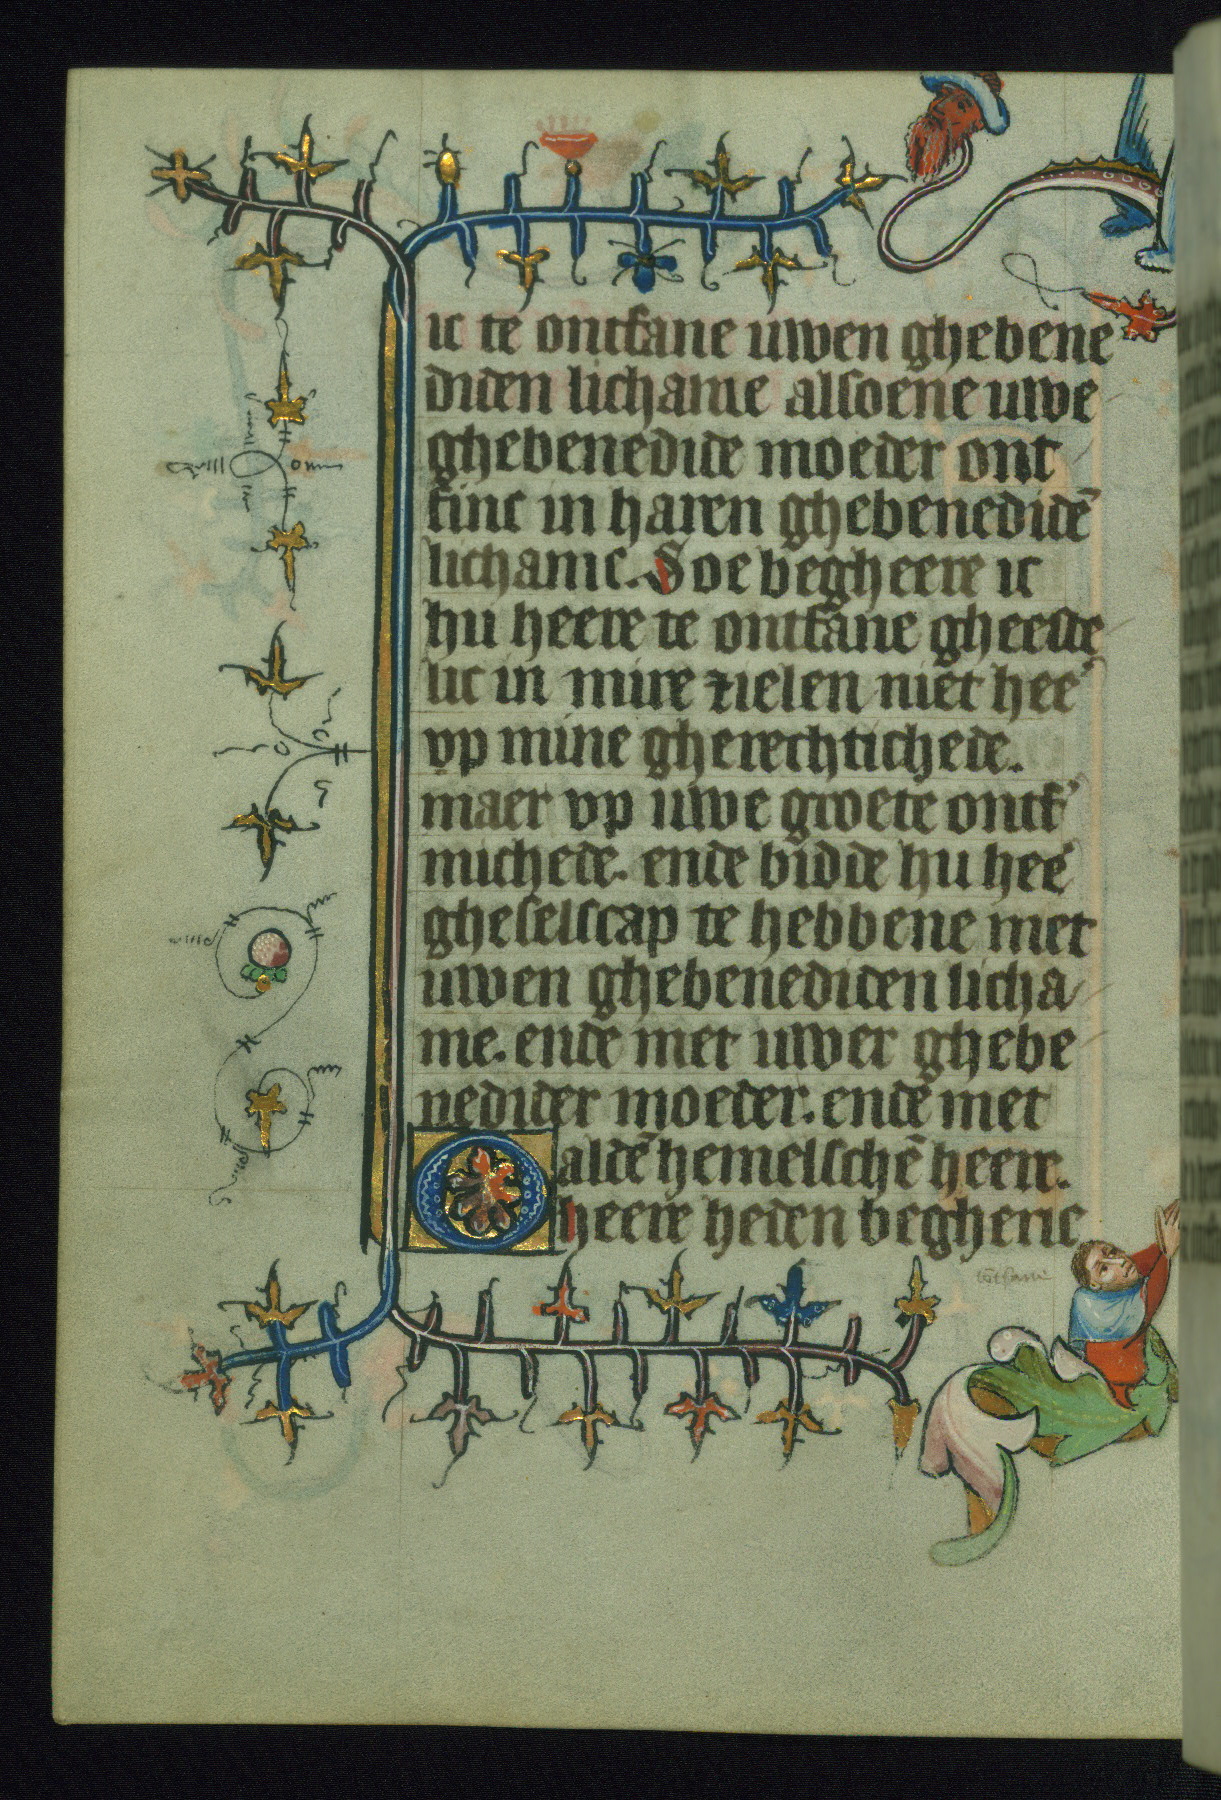 ic te ontfane uwen ghebene
diden lichame alsoene uwe
ghebenedide moeder ont
finc in haren ghebenedidē
lichame. Soe begheere ic
hu heere te ontfane gheeste
lic in mire zielen niet hee᷒
vp mine gherechtichede.
maer vp uwe groete ontf᷒
michede. ende bidde hu hee᷒
gheselscap te hebbene met
uwen ghebenediden licha
me. ende met uwer ghebe
nedider moeder. ende met
aldē hemelschē heere.
O heere heden begheric